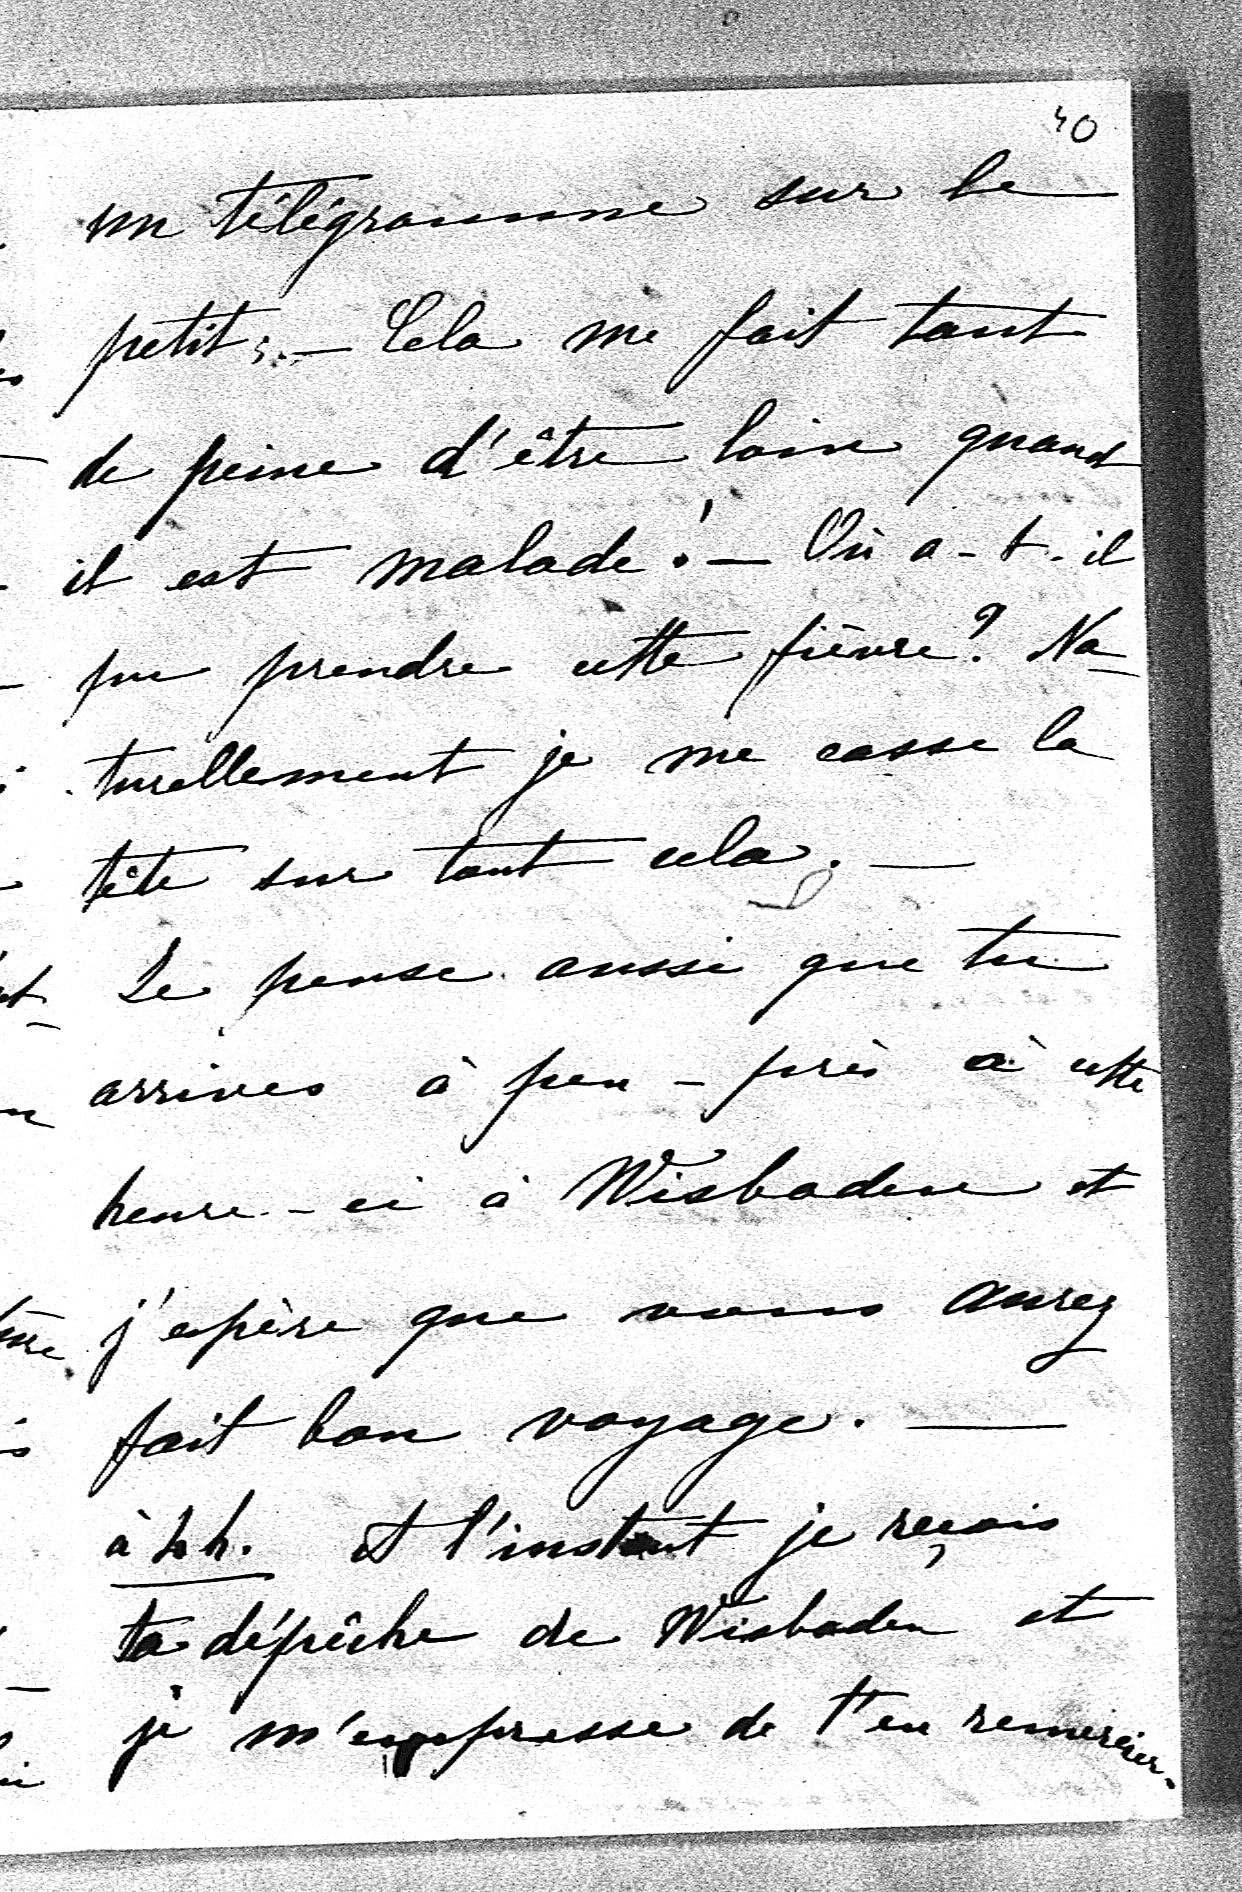 40
un télégramme sur le
petit. — Cela me fait tant
de peine d'être loin quand
il est malade! — Où a-t-il
pu prendre cette fièvre? Na-
turellement je me casse la
tête sur tout cela. —
Je pense aussi que tu
arrives à peu-près à cette
heure-ci à Wisbaden et
j'espère que vous aurez
fait bon voyage. —
à 4 h. A l'instant je reçois
ta dépêche de Wisbaden et
je m'empresse de t'en remercier.